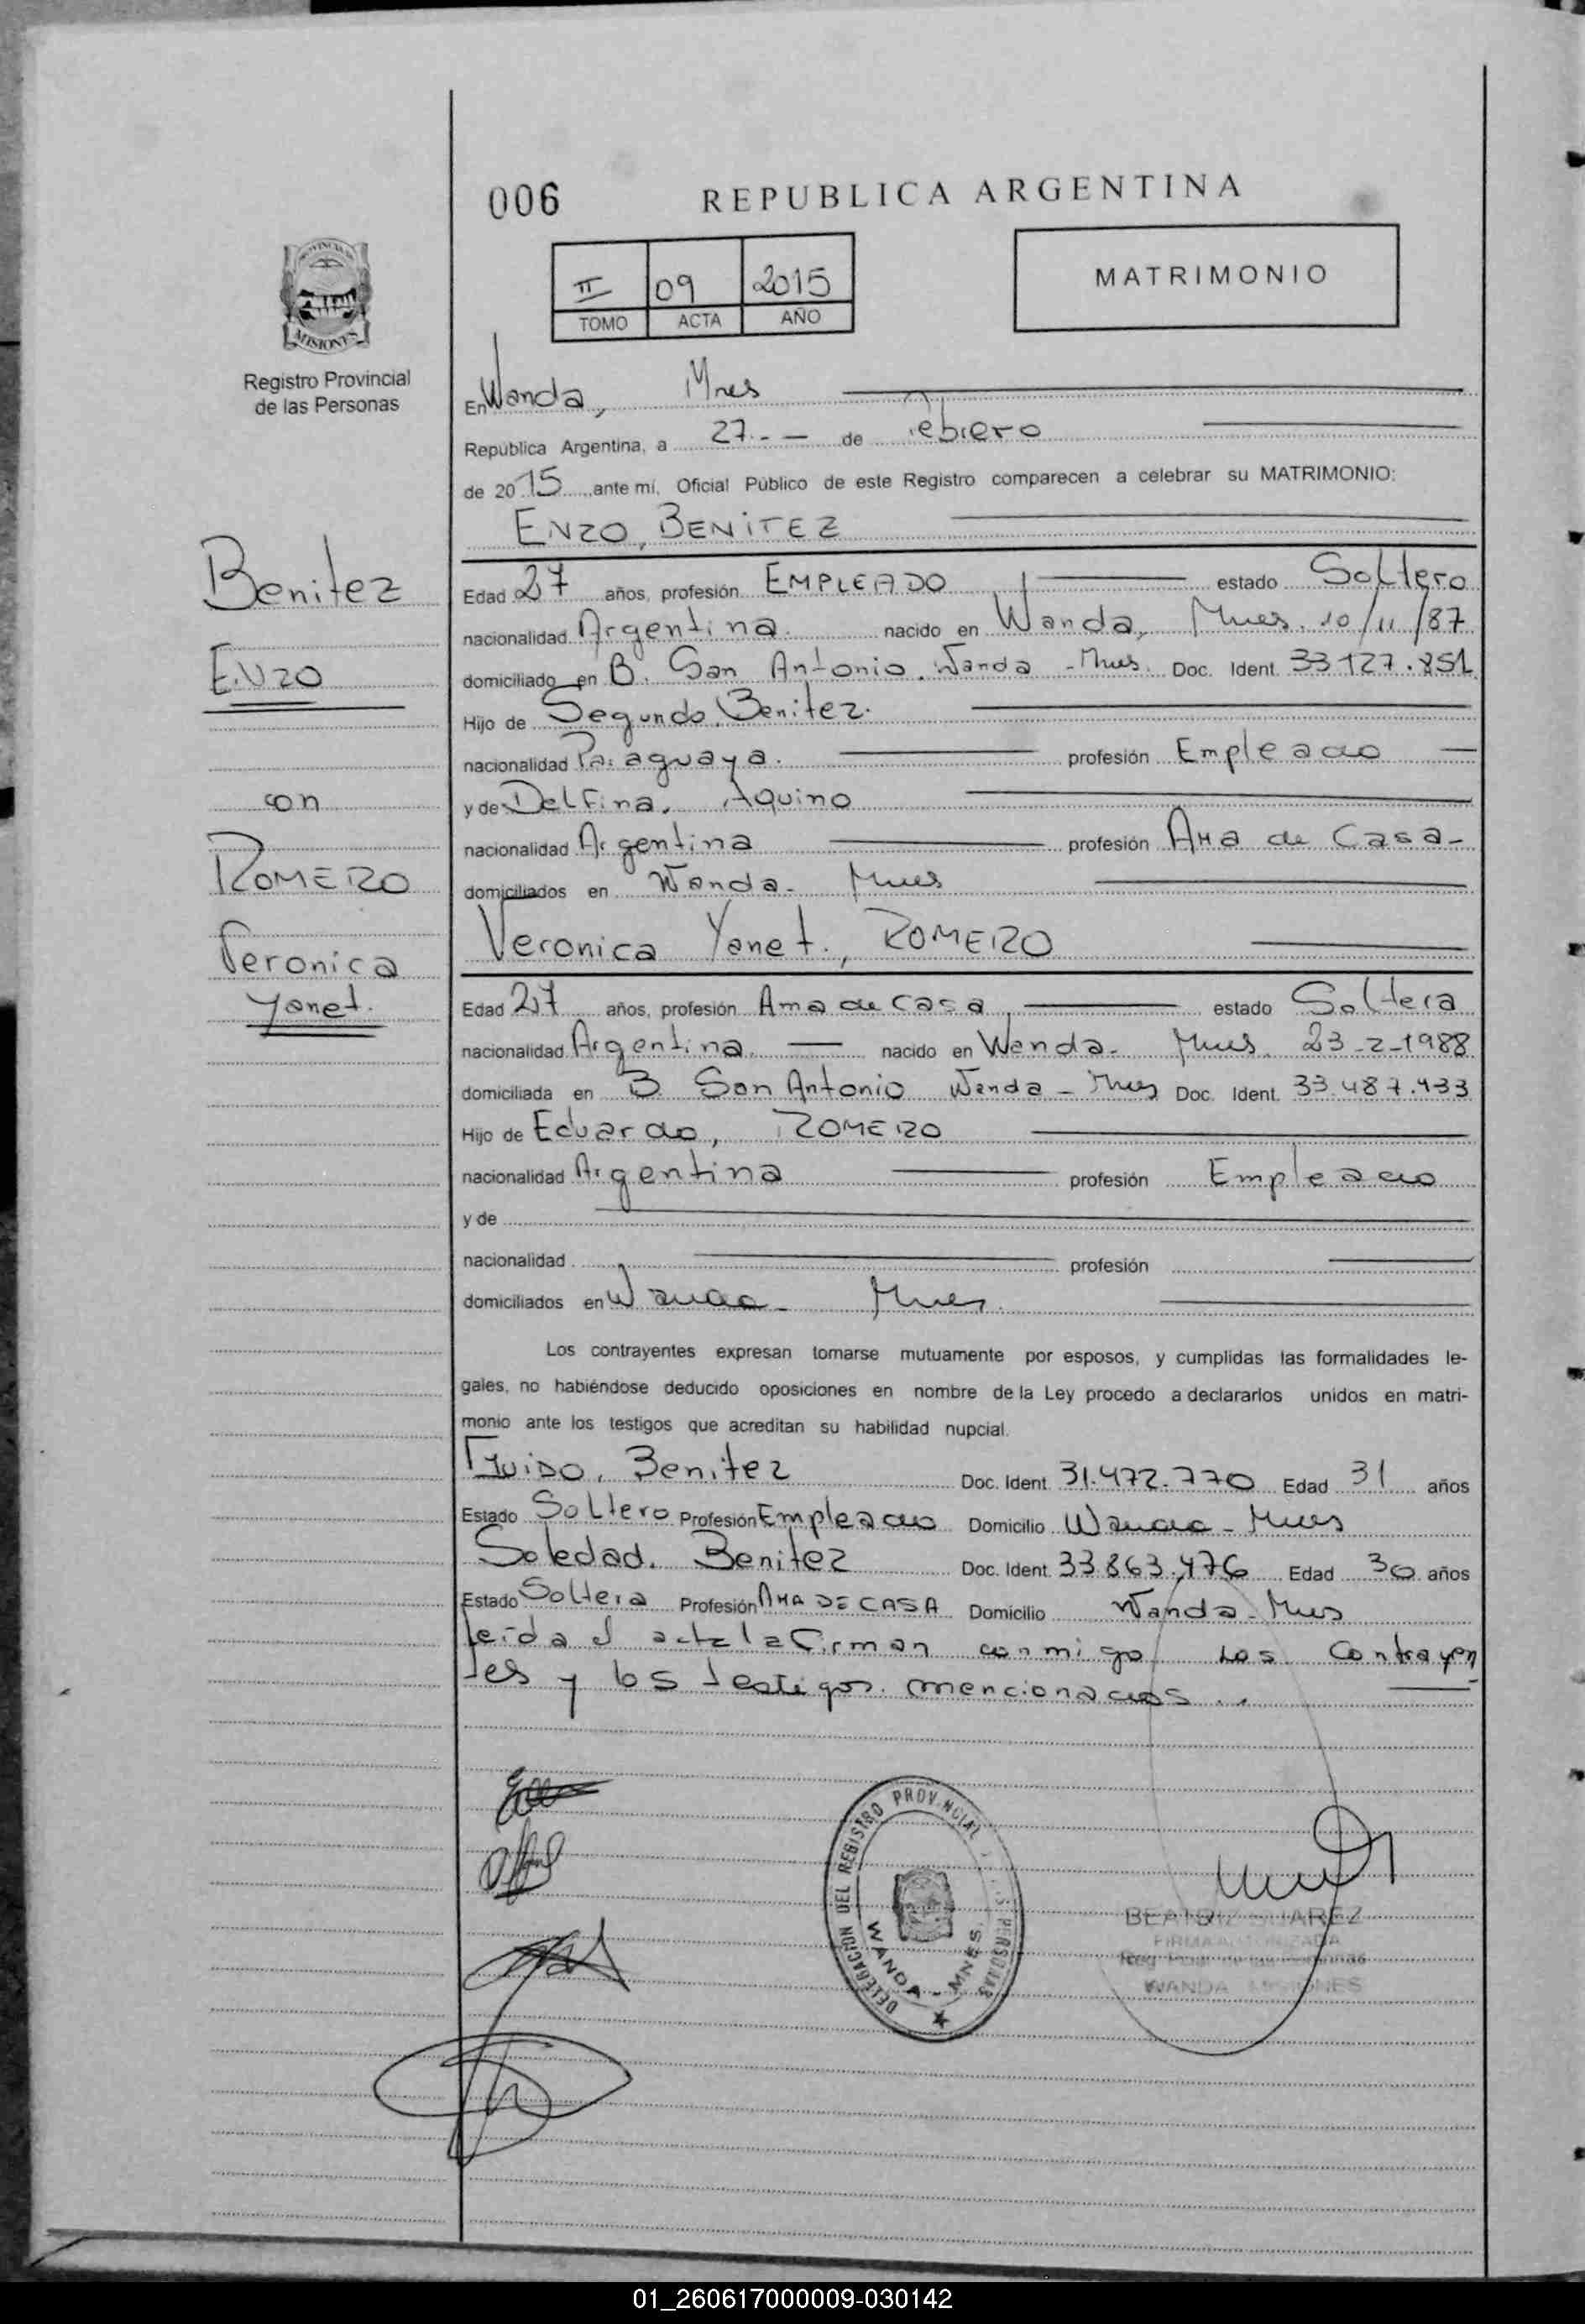 006
REPUBLICA ARGENTINA
II 09 2015
TOMO ACTA AÑO
MATRIMONIO
PROVINCIA DE
MISIONES
Registro Provincial
de las Personas
En Wanda, Mnes
República Argentina, a 27.- — de Febrero
de 2015 ante mí, Oficial Público de este Registro comparecen a celebrar su MATRIMONIO:
ENZO, BENITEZ
Benitez
Enzo
con
ROMERO
Veronica
Yanet.
Edad 27 años, profesión EMPLEADO estado Soltero
nacionalidad Argentina. nacido en Wanda, Mnes. 10/11/87
domiciliado en B. San Antonio. Wanda - Mnes. Doc. Ident. 33.127.851
Hijo de Segundo, Benitez.
nacionalidad Paraguaya. profesión Empleado
y de Delfina, Aquino
nacionalidad Argentina profesión Ama de Casa-
domiciliados en Wanda - Mnes
Veronica Yanet., ROMERO
Edad 27 años, profesión Ama de casa estado Soltera
nacionalidad Argentina. nacido en Wanda- Mnes. 23-2-1988
domiciliada en B. San Antonio Wanda - Mnes Doc. Ident. 33.487.433
Hijo de Eduardo, ROMERO
nacionalidad Argentina profesión Empleado
y de
nacionalidad profesión
domiciliados en Wanda - Mnes.
Los contrayentes expresan tomarse mutuamente por esposos, y cumplidas las formalidades le-
gales, no habiéndose deducido oposiciones en nombre de la Ley procedo a declararlos unidos en matri-
monio ante los testigos que acreditan su habilidad nupcial.
Benitez Doc. Ident. 31.472.770 Edad 31 años
Estado Soltero Profesión Empleado Domicilio Wanda - Mnes
Soledad. Benitez Doc. Ident. 33.863.476 Edad 30 años
Estado Soltera Profesión AMA DE CASA Domicilio Wanda - Mnes
leída el acta la firman conmigo los contrayen
tes y los testigos mencionados..
DELEGACION DEL REGISTRO PROVINCIAL DE LAS PERSONAS
WANDA - MNES.
BEATRIZ SUAREZ
FIRMA AUTORIZADA
WANDA MISIONES
01_260617000009-030142